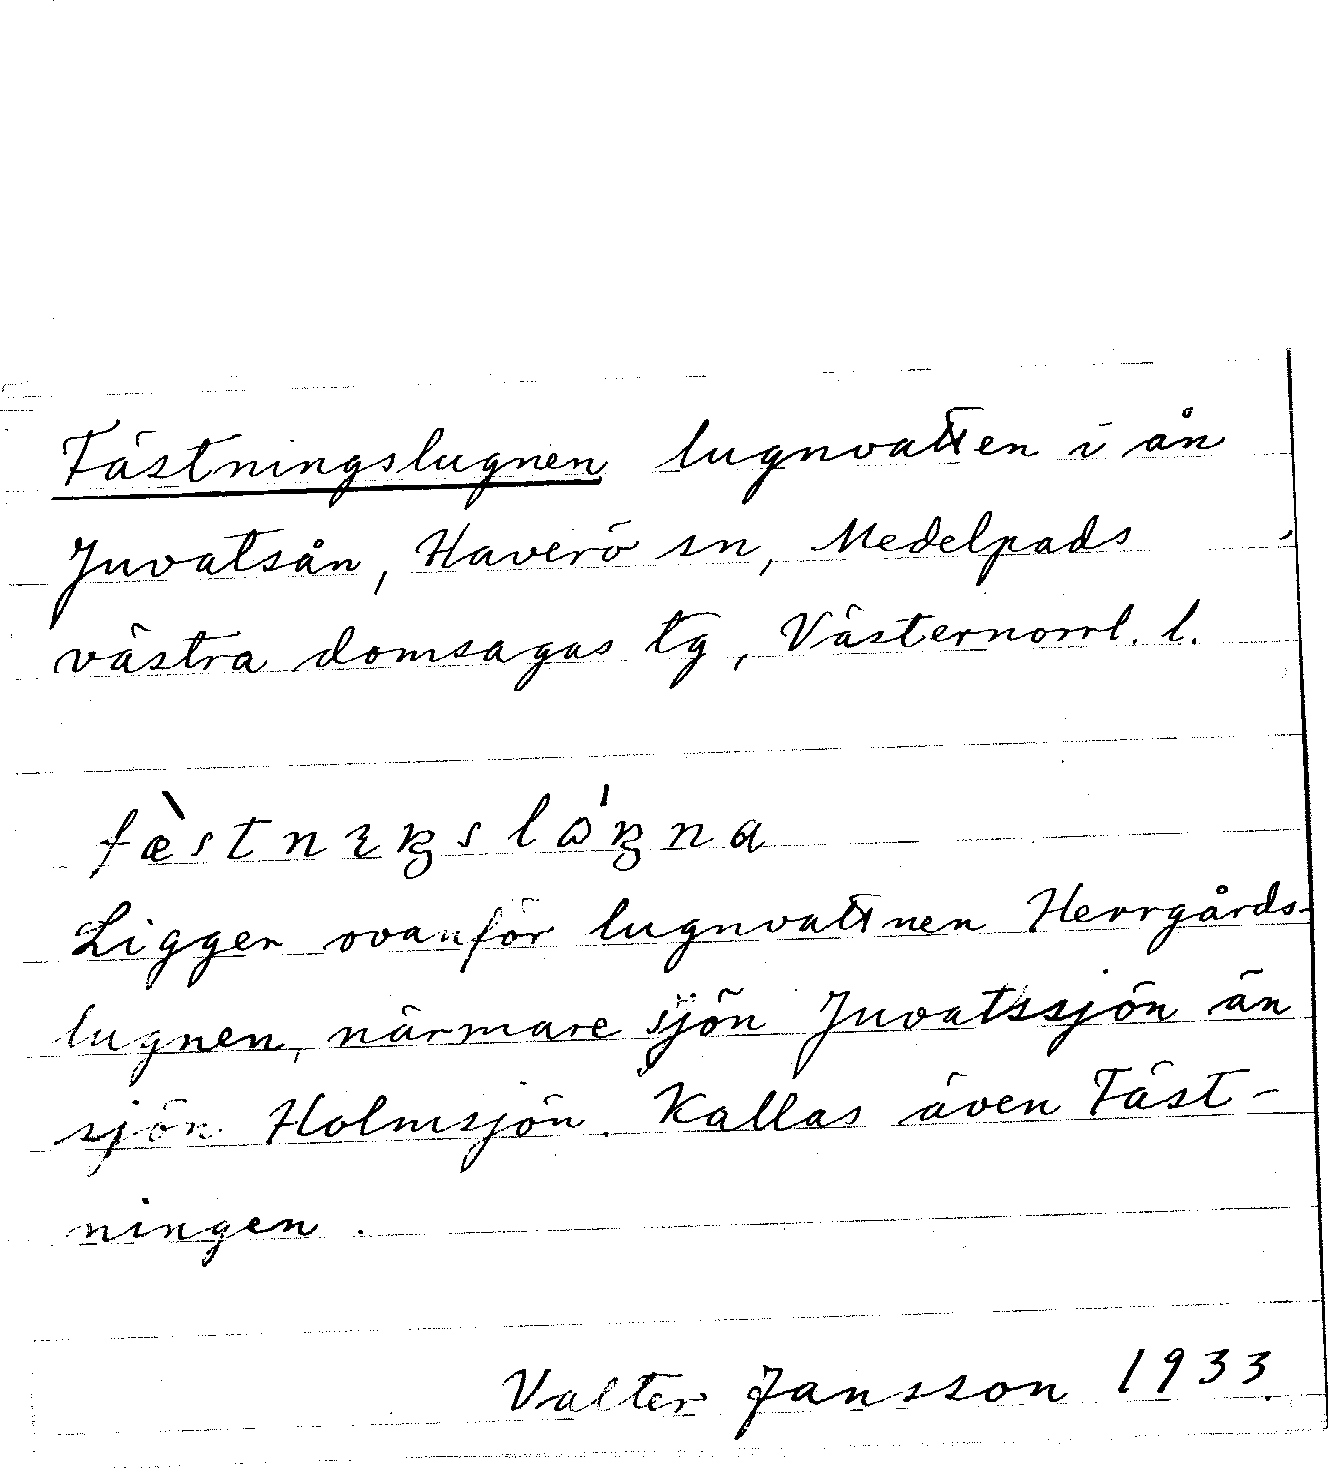 Fästningslugnen lugnvatten i ån
Juvatsån, Haverö sn, Medelpads
västra domsagas tg, Västernorrl. l.
Ligger ovanför lugnvattnen Herrgårds-
lugnen, närmare sjön Juvatssjön än
sjön Holmsjön. Kallas även Fäst-
ningen.
Valter Jansson 1933